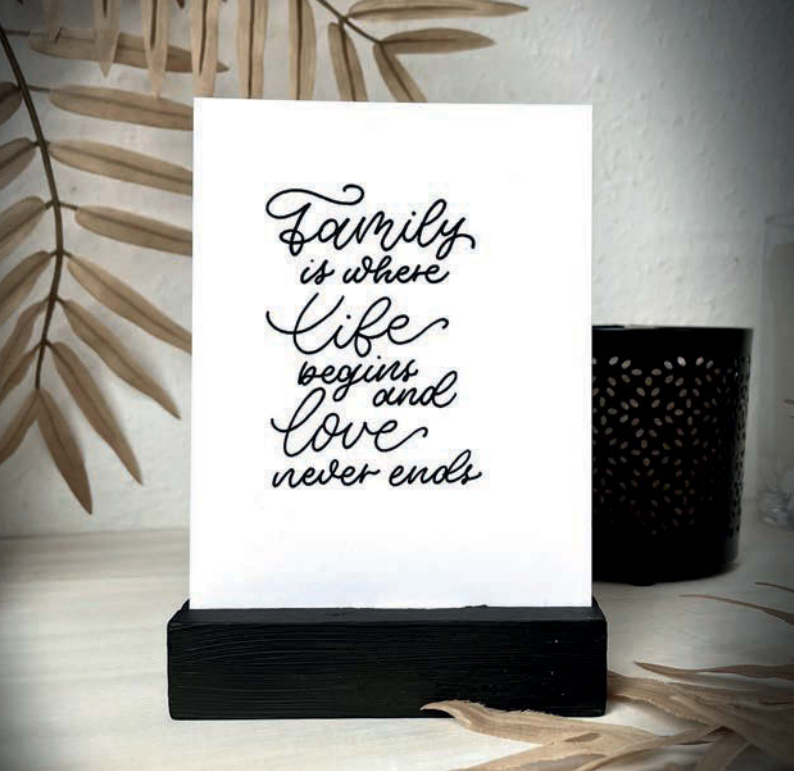 Family
is where
Life
begins
and
love
never ends